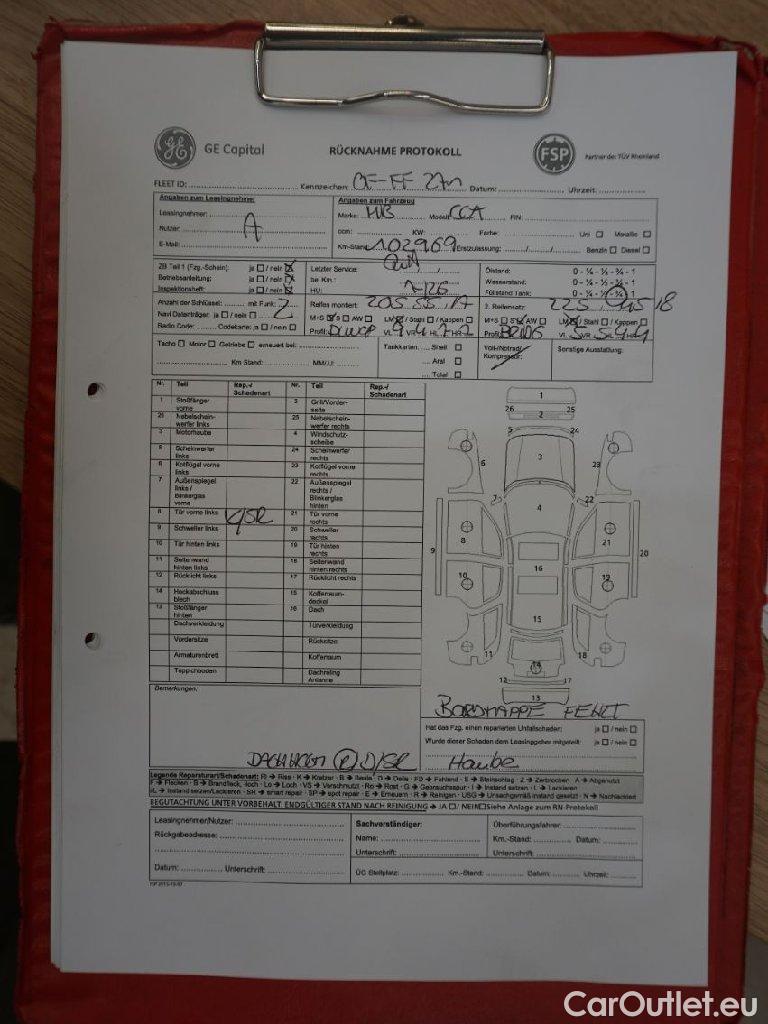 GE Capital RÜCKNAHME PROTOKOLL FSP Partner der TÜV Rheinland
FLEET ID: Kennzeichen: Datum: Uhrzeit:
Angaben zum Leasingnehmer
Angaben zum Fahrzeug
Leasingnehmer:
Marke: MB Modell: FIN:
Nutzer: A
ccm: KW: Farbe: Uni Metallic
E-Mail:
Km-Stand: 102969 Erstzulassung: Benzin Diesel
ZB Teil 1 (Fzg.-Schein): ja / nein
Betriebsanleitung: ja / nein
Inspektionsheft: ja / nein
Letzter Service:
bei Km.:
HU:
Ölstand: 0 - ¼ - ½ - ¾ - 1
Wasserstand: 0 - ¼ - ½ - ¾ - 1
Füllstand Tank: 0 - ¼ - ½ - ¾ - 1
Anzahl der Schlüssel: mit Funk: 2
Navi Datenträger: ja / nein
Radio Code: Codekarte: ja / nein
Reifen montiert: 205 55
M+S S AW LM / Stahl / Kappen
Profil:
2. Reifensatz: 225 18
M+S S AW LM / Stahl / Kappen
Profil:
Tacho Motor Getriebe erneuert bei:
Km Stand: MM/JJ:
Tankkarten: Shell
Aral
Total
Voll-/Notrad/
Kompressor:
Sonstige Ausstattung:
Nr. Teil Rep.-/ Schadenart Nr. Teil Rep.-/ Schadenart
1 Stoßfänger vorne 2 Grill/Vorderseite
26 Nebelscheinwerfer links 25 Nebelscheinwerfer rechts
3 Motorhaube 4 Windschutzscheibe
5 Scheinwerfer links 24 Scheinwerfer rechts
6 Kotflügel vorne links 23 Kotflügel vorne rechts
7 Außenspiegel links / Blinkerglas vorne 22 Außenspiegel rechts / Blinkerglas hinten
8 Tür vorne links 21 Tür vorne rechts
9 Schweller links 20 Schweller rechts
10 Tür hinten links 19 Tür hinten rechts
11 Seitenwand hinten links 18 Seitenwand hinten rechts
12 Rücklicht links 17 Rücklicht rechts
14 Heckabschlussblech 15 Kofferraumdeckel
13 Stoßfänger hinten 16 Dach
Dachverkleidung Türverkleidung
Vordersitze Rücksitze
Armaturenbrett Kofferraum
Teppichboden Dachreling Antenne
1
26 25
2
5 24
3
6 23
7 22
4
8 21
9 20
16
10 19
15
11 18
14
12 17
13
Bemerkungen:
BORDMAPPE FEHLT
Hat das Fzg. einen reparierten Unfallschaden: ja / nein
Wurde dieser Schaden dem Leasinggeber mitgeteilt: ja / nein
Haube
Legende Reparaturart/Schadenart: Ri → Riss - K → Kratzer - B → Beule - D → Delle - FD → Fehlend - S → Steinschlag - Z → Zerbrochen - A → Abgenutzt
F → Flecken - B → Brandfleck, -loch - Lo → Loch - VS → Verschmutzt - Ro → Rost - G → Gebrauchsspur - I → Instand setzen - L → Lackieren
IL → Instand setzen/Lackieren - SR → smart repair - SP → spot repair - E → Erneuern - R → Reinigen - USG → Unsachgemäß instand gesetzt - N → Nachlackiert
BEGUTACHTUNG UNTER VORBEHALT ENDGÜLTIGER STAND NACH REINIGUNG → JA / NEIN Siehe Anlage zum RN-Protokoll
Leasingnehmer/Nutzer: Sachverständiger: Überführungsfahrer:
Rückgabeadresse: Name: Km.-Stand: Datum:
Unterschrift: Unterschrift:
Datum: Unterschrift: ÜC Stellplatz: Km.-Stand: Datum: Uhrzeit:
CarOutlet.eu